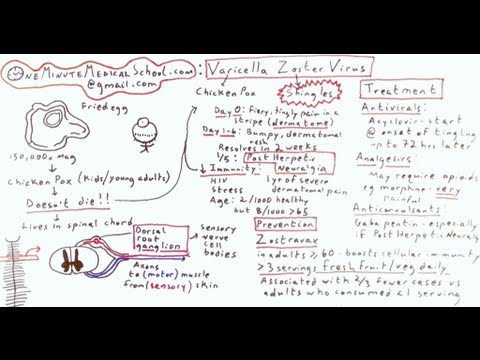 OneMinuteMedicalSchool.com
@gmail.com
: Varicella Zoster Virus
Fried egg
150,000x mag
Chicken Pox (Kids/young adults)
Doesn't die!!
Lives in spinal chord
Dorsal
root
ganglion
sensory
nerve
cell
bodies
Axons
to (motor) muscle
from (sensory) skin
Chicken Pox
Shingles
Day 0: Fiery, tingly pain in a
stripe (dermatome)
Day 1-6: Bumpy, dermatomal
rash
Resolves in 2 weeks
1/5: Post Herpetic
Neuralgia
↓ Immunity:
HIV
Stress
1 yr of severe
dermatomal pain
Age: 2/1000 healthy
but 8/1000 >65
Prevention
Zostravax
in adults ≥ 60 - boosts cellular immunity
>3 servings fresh fruit/veg daily
Associated with 2/3 fewer cases vs
adults who consumed <1 serving
Treatment
Antivirals:
Acyclovir - start
@ onset of tingling
up to 72 hrs later
Analgesics:
May require opioids
eg morphine - very
painful
Anticonvulsants:
Gabapentin - especially
if Post Herpetic Neuralgia